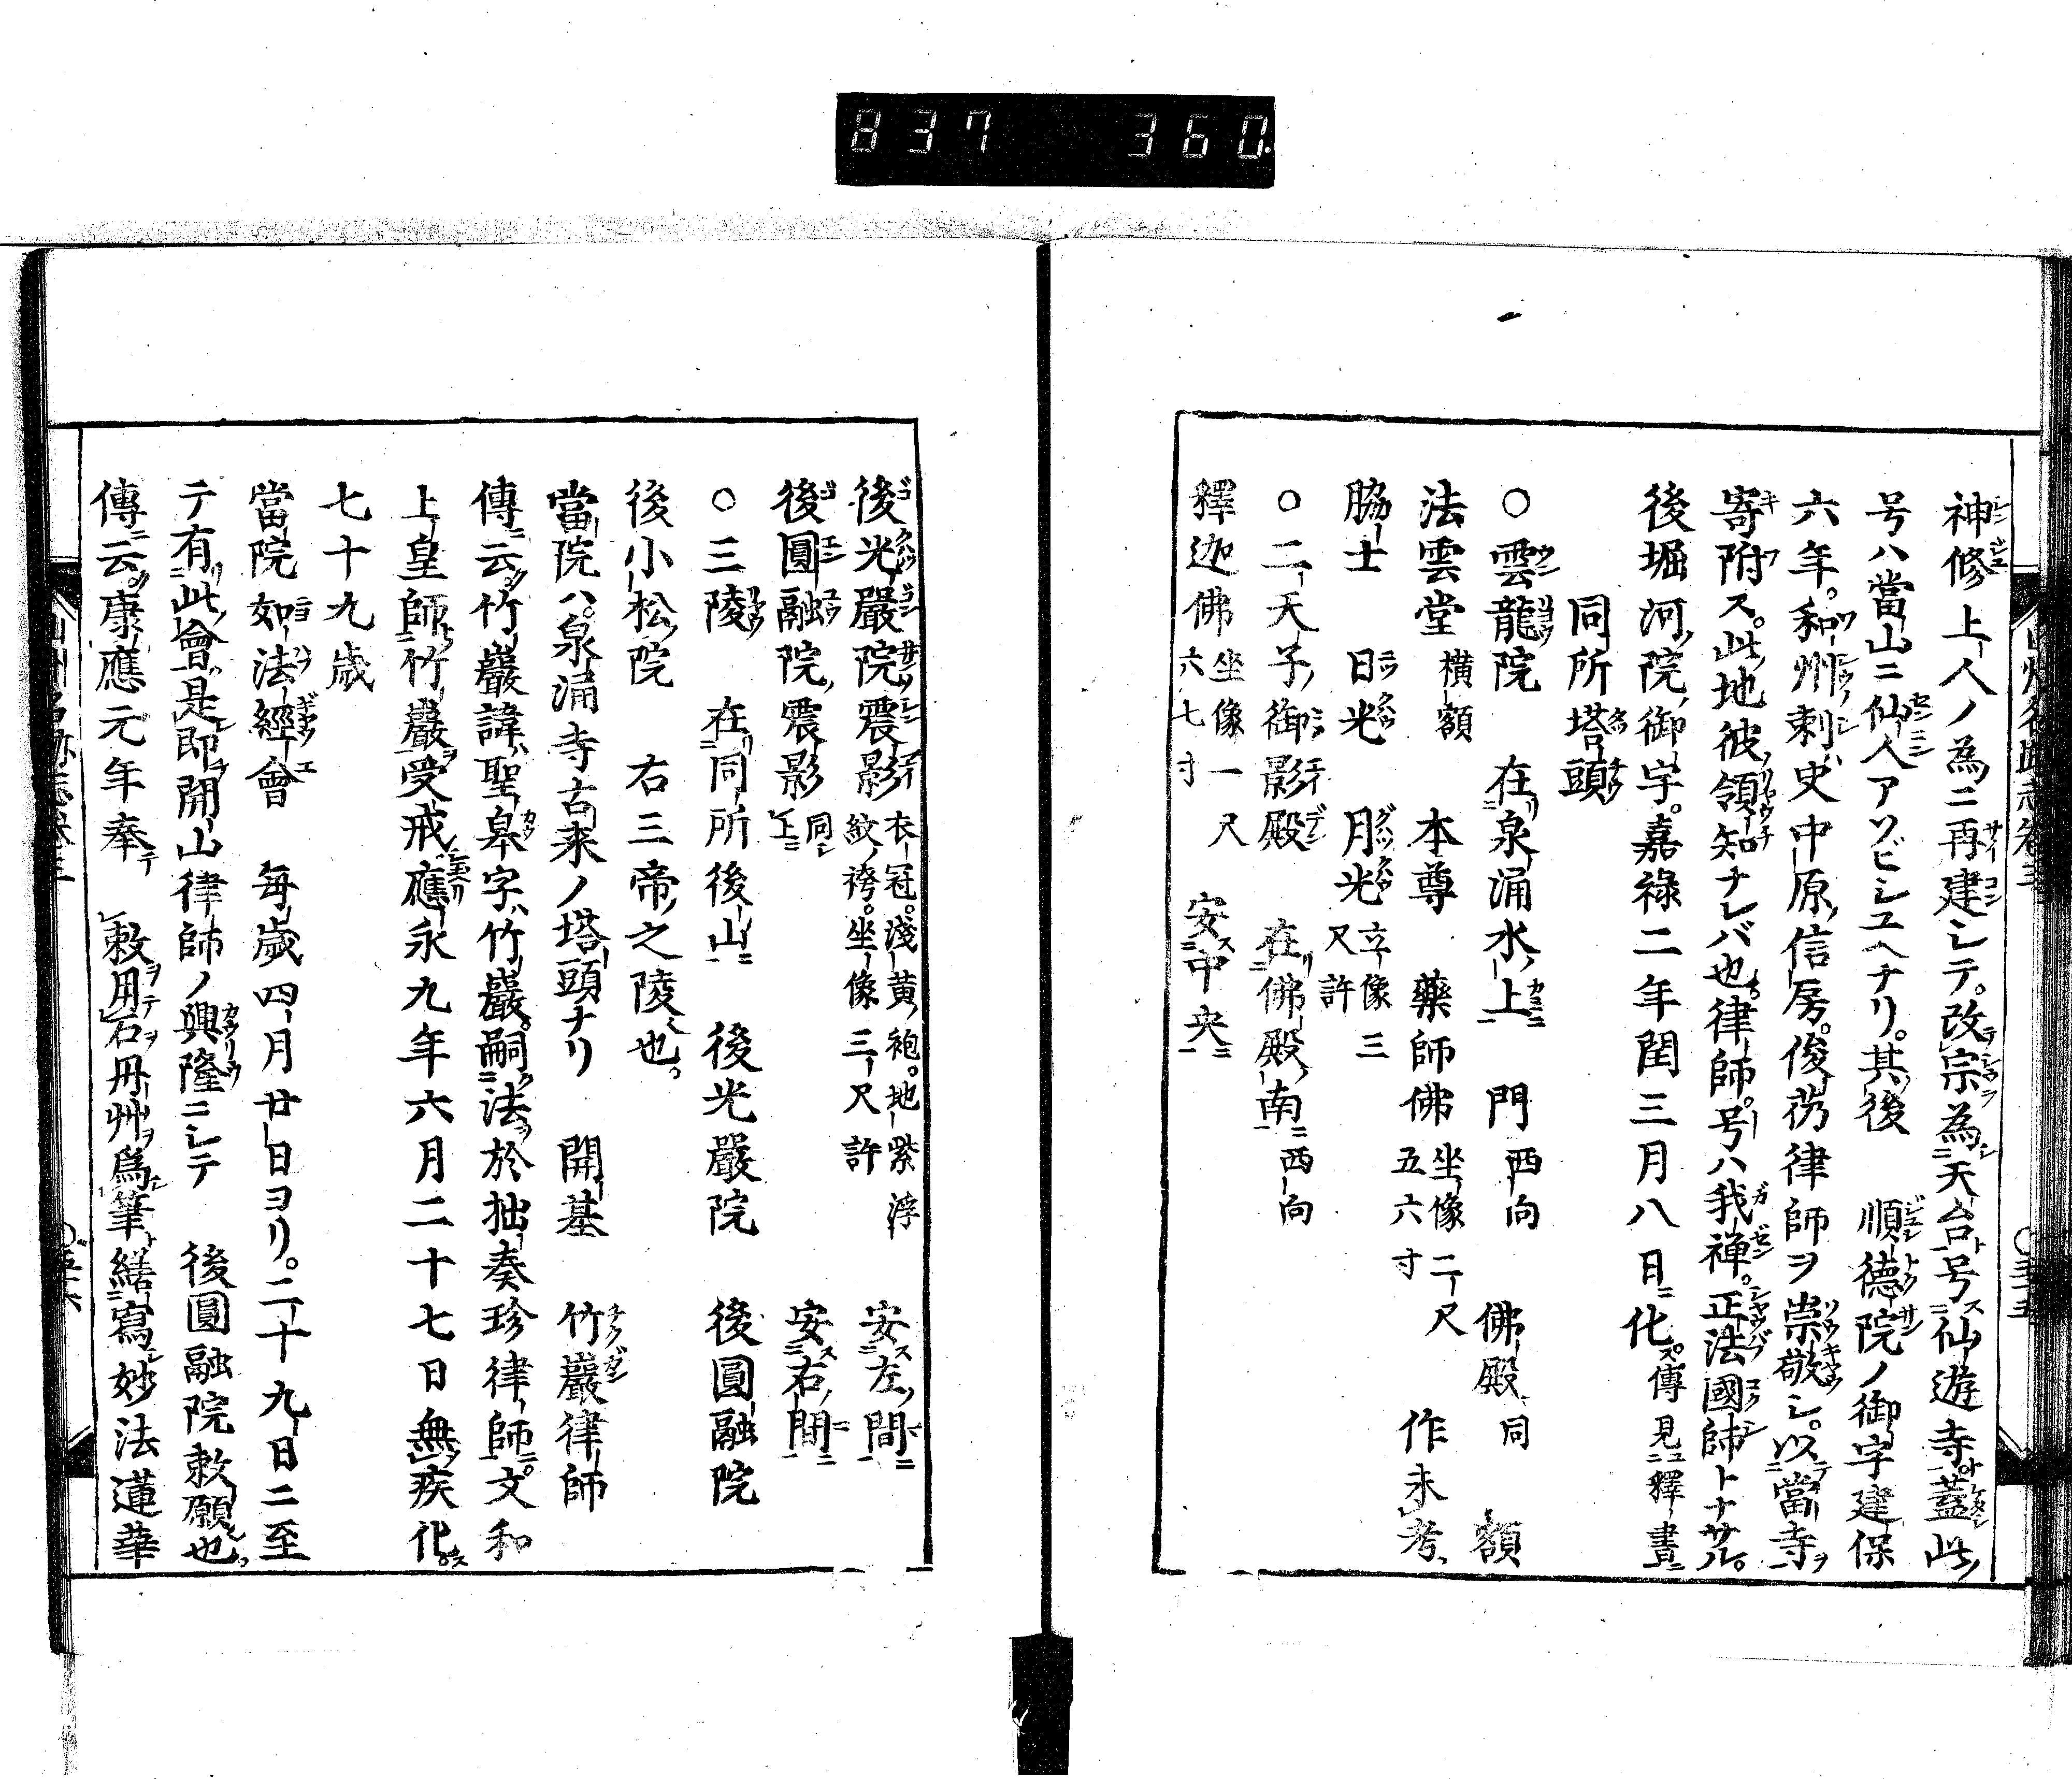 837 360
神修上人ノ為ニ再建シテ。改宗為天台号仙遊寺。蓋此
号ハ當山ニ仙人アソビシユヘナリ。其後 順徳院ノ御宇建保
六年。和州刺史中原信房。俊芿律師ヲ崇敬シ。以當寺
寄附ス。此地彼領知ナレバ也。律師号ハ我禅。正法國師トナサル。
後堀河院御宇。嘉祿二年閏三月八日化 傳見釋書
同所塔頭
○雲龍院 在泉涌水上 門西向 佛殿同 額
法雲堂 横額 本尊 藥師佛 坐像二尺五六寸 作未考
脇士 日光 月光 立像三尺許
○二天子御影殿 在佛殿南西向
釋迦佛 坐像一尺六七寸 安中央
後光嚴院震影 衣冠。淺黄袍。地紫浮紋袴。坐像三尺許 安左間
後圓融院震影 同上 安右間
○三陵 在同所後山 後光嚴院 後圓融院
後小松院 右三帝之陵也。
當院ハ。泉涌寺古来ノ塔頭ナリ 開基 竹巖律師
傳云竹巖諱聖皐字竹巖。嗣法於拙奏珍律師。文和
上皇師竹巖受戒應永九年六月二十七日無疾化。
七十九歳
當院如法經會 毎歳四月廿日ヨリ。二十九日ニ至
テ有此會是即開山律師ノ興隆ニシテ 後圓融院敕願也
傳云。康應元年奉 敕用石丹州為筆繕寫妙法蓮華